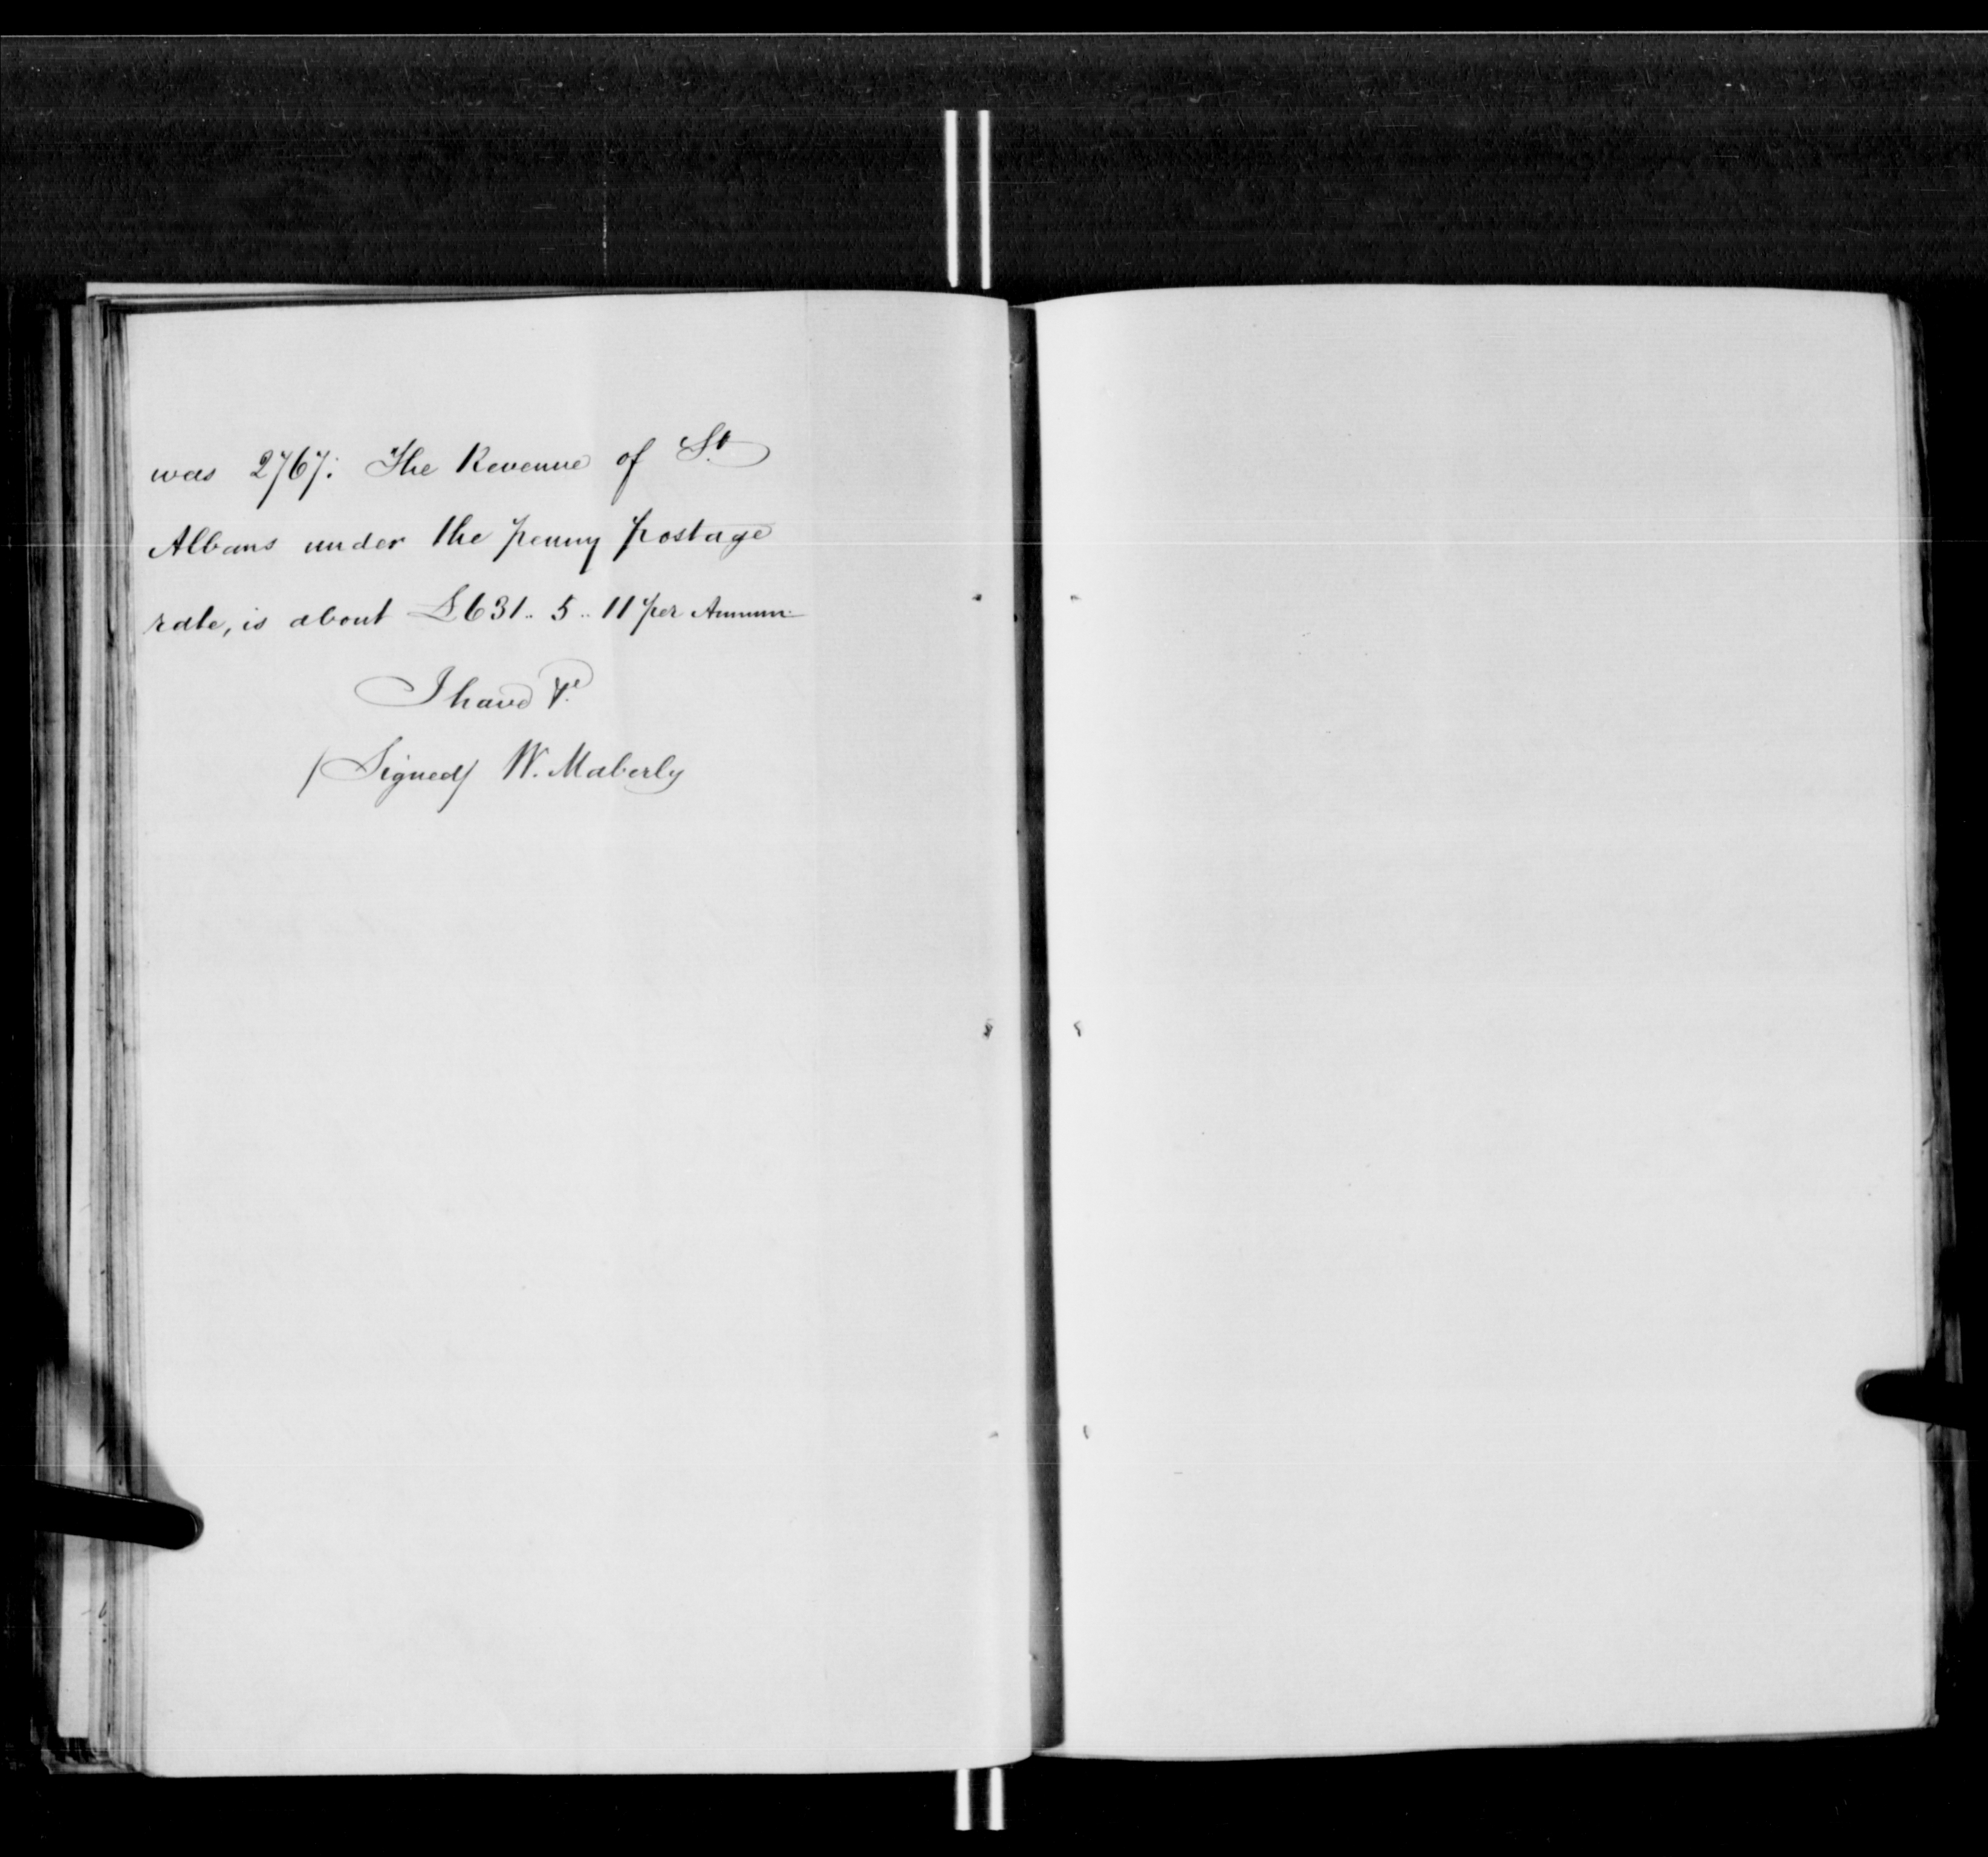 was 2767: The Revenue of St
Albans under the penny postage
rate, is about £631.. 5.. 11 per Annum
I have &c
(Signed) W. Maberly